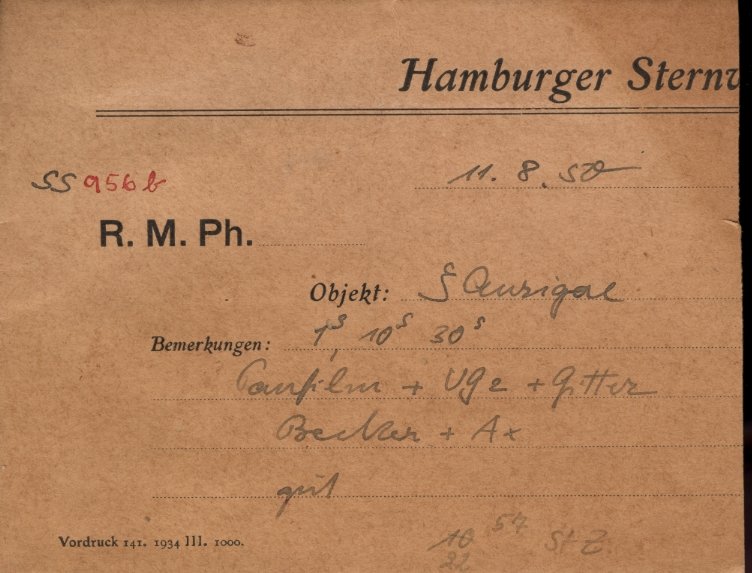 Hamburger Sternw
SS 956 b
11. 8. 50
R. M. Ph.
Objekt: ζ Aurigae
Bemerkungen: 1s, 10s 30s
Panfilm + UG2 + Gitter
Becker + Ax
gut
Vordruck 141. 1934 III. 1000.
10 57 St Z.
22